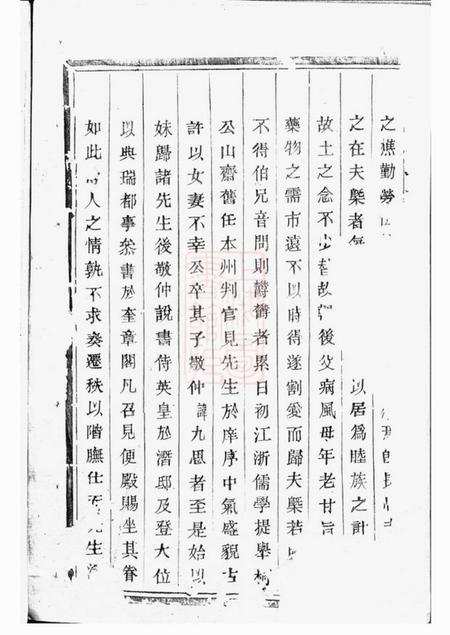 之譙勤勞
之在夫槩者 以居爲睦族之計
故土之念不少 後父病風母年老甘旨
藥物之需市遠不以時得遂割愛而歸夫槩若
不得伯兄音問則欝欝者累日初江浙儒學提舉柯
公山齋舊任本州判官見先生於庠序中氣盛貌古
許以女妻不幸公卒其子敬仲諱九思者至是始以
妹歸諸先生後敬仲說書侍英皇於潛邸及登大位
以典瑞都事叅書於奎章閣凡召見便殿賜坐其眷
如此 人之情孰不求奏遷秩以階膴仕 先生